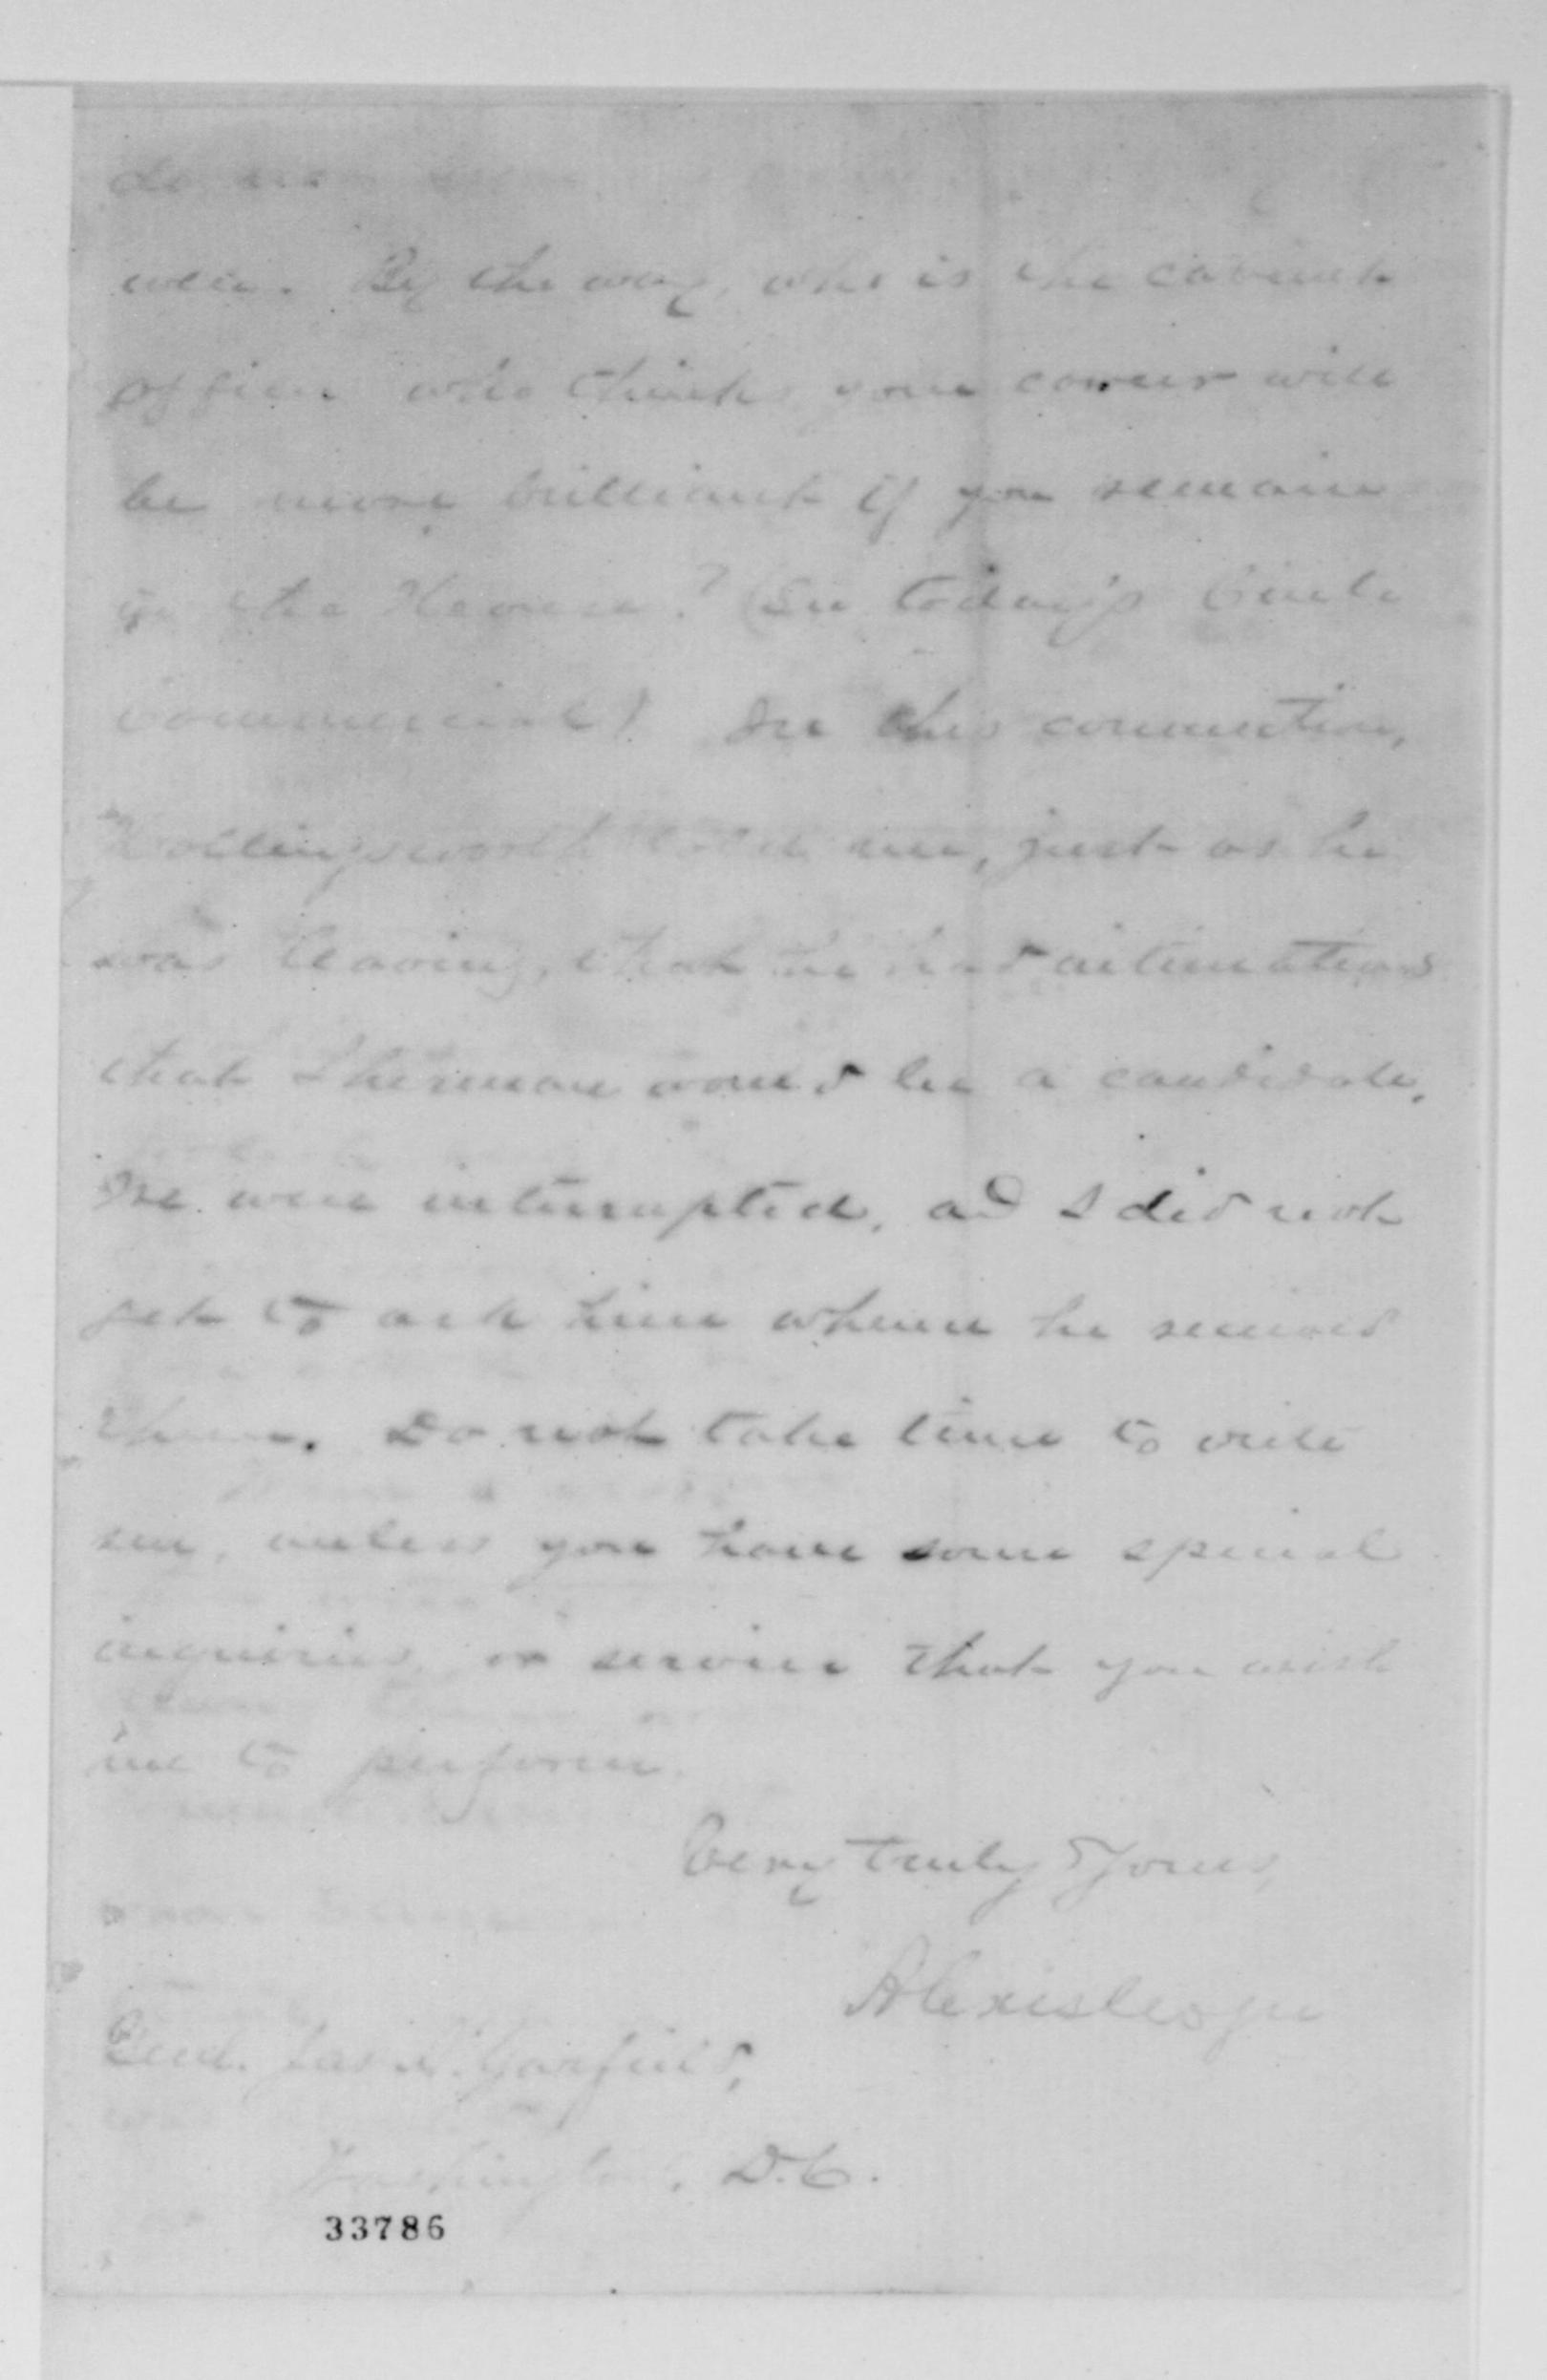 do
well. By the way, who is the cabinet
officer who thinks your career will
be more brilliant if you remain
in the House? (See today's Cincti
Commercial) In this connection,
Hollingsworth told me, just as he
was leaving, that he had intimations
that Sherman would be a candidate.
We were interrupted, and I did not
get to ask him whence he received
them. Do not take time to write
me, unless you have some special
inquiries or service that you wish
me to perform.
Very truly Yours,
Alexis Cope
Genl. Jas. A. Garfield,
Washington, D.C.
33786